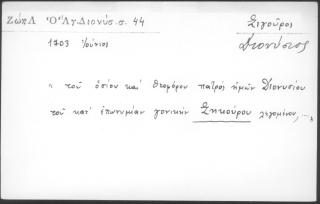 Ζώη Λ Ὁ Ἅγ Διονύσ. σ. 44
Σιγοῦρος
1703 Ἰούνιος
Διονύσιος
" τοῦ ὁσίου καὶ θεοφόρου πατρὸς ἡμῶν Διονυσίου
τοῦ κατ' ἐπωνυμίαν γονικὴν Σηκούρου λεγομένου, ...